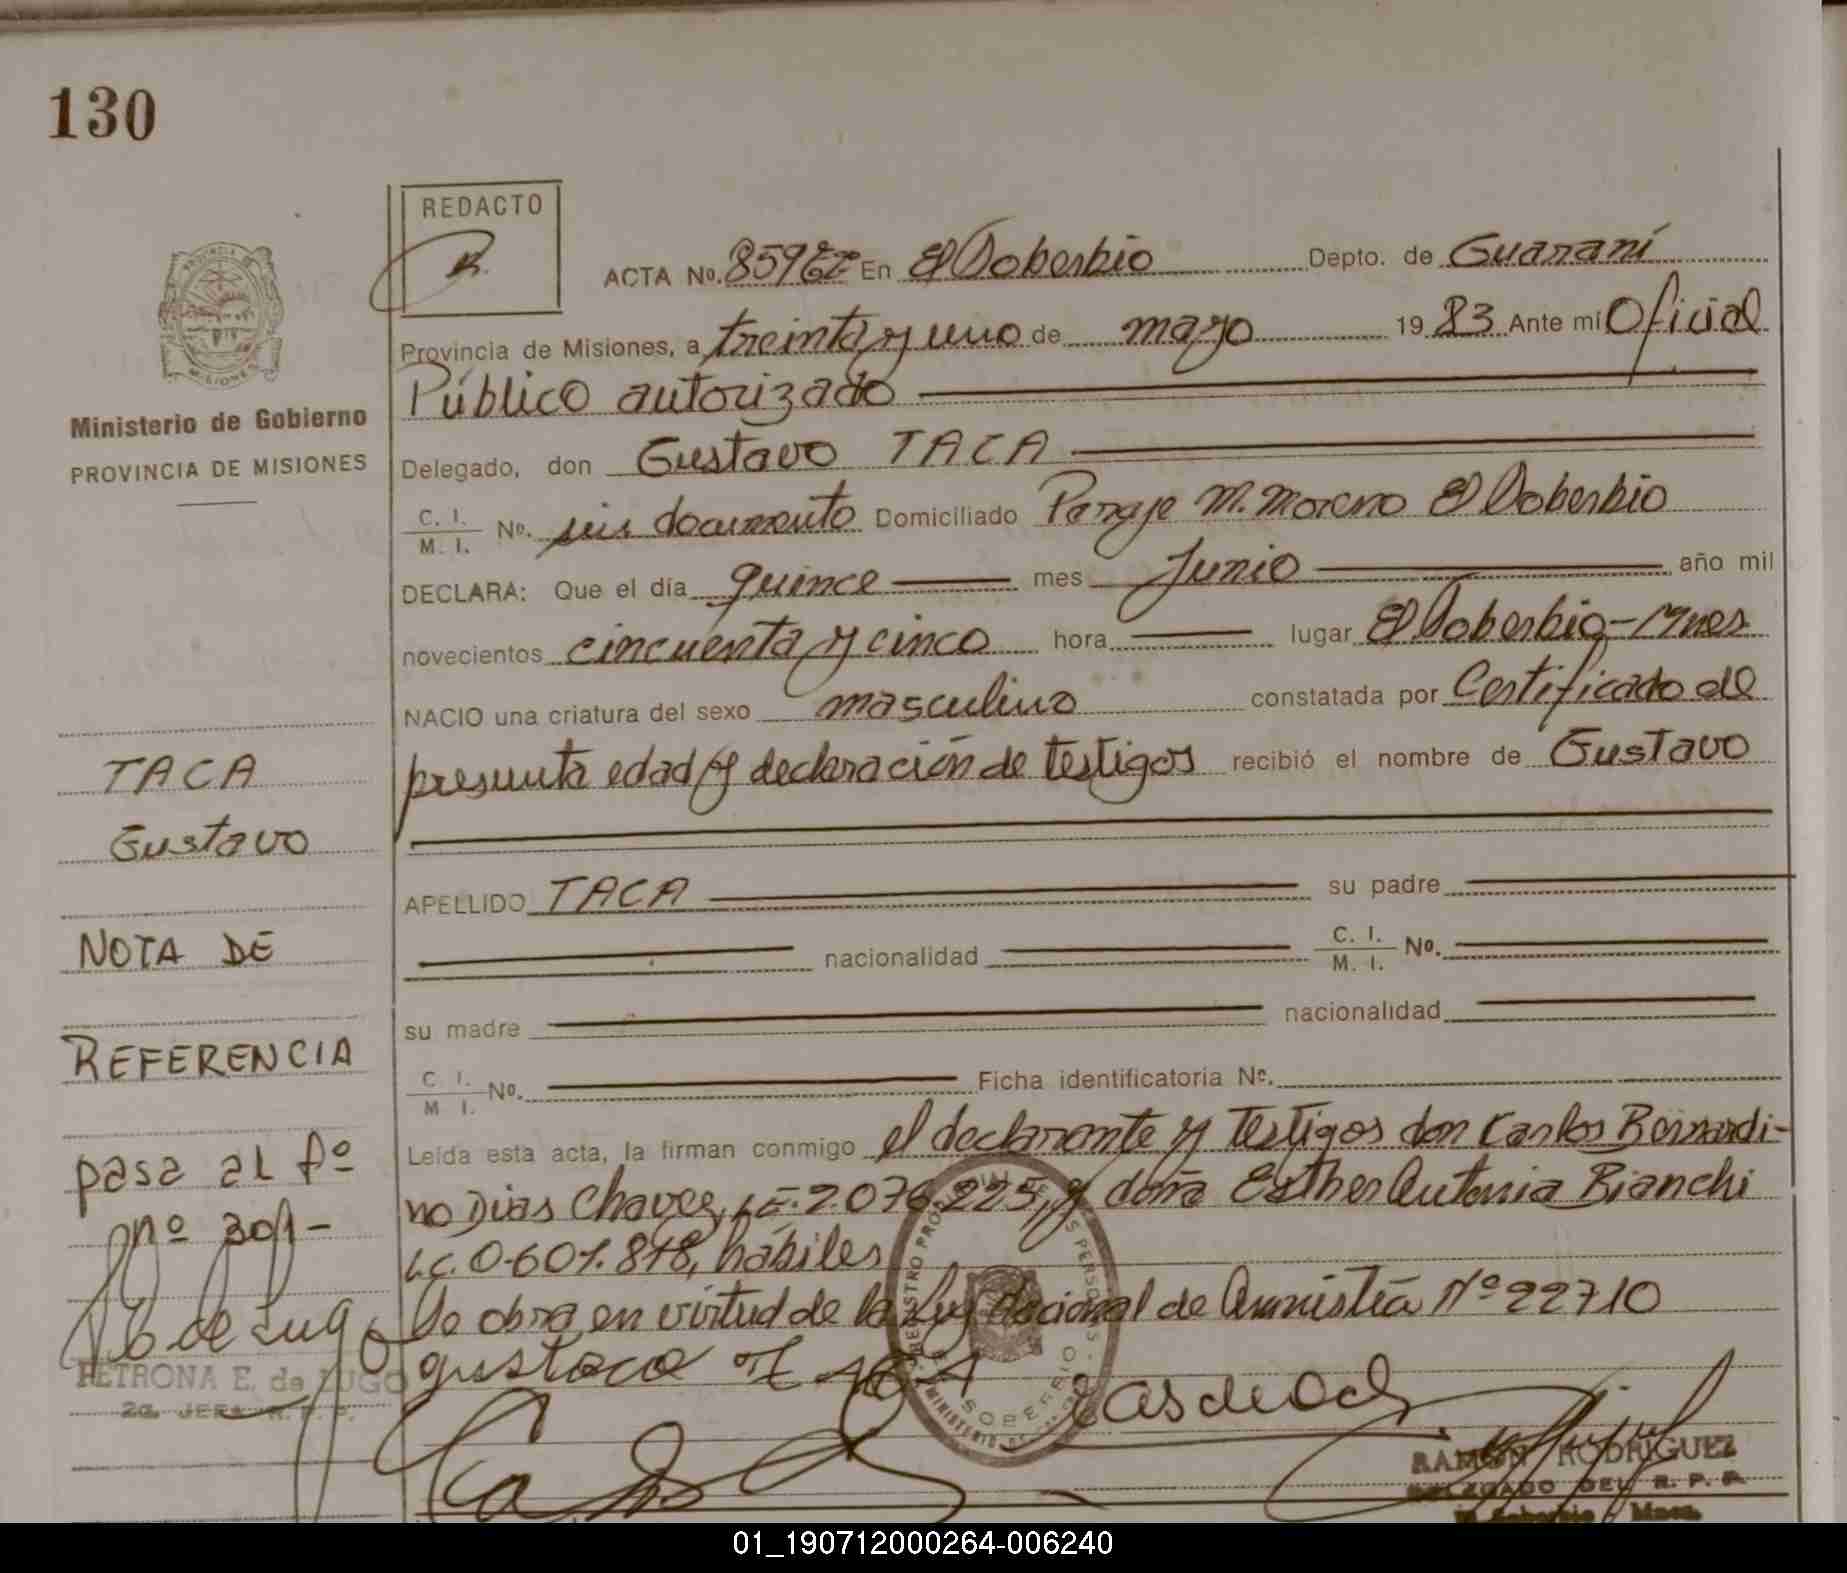 130
REDACTO
ACTA No. 859 En El Soberbio Depto. de Guaraní
Provincia de Misiones, a treinta y uno de mayo 19 83 Ante mi Oficial
Público autorizado
Ministerio de Gobierno
PROVINCIA DE MISIONES
Delegado, don Gustavo TACA
C. I.
M. I. No. sin documento Domiciliado Paraje M. Moreno El Soberbio
DECLARA: Que el día quince mes Junio año mil
novecientos cincuenta y cinco hora lugar El Soberbio-Mnes
NACIO una criatura del sexo masculino constatada por Certificado de
presunta edad y declaración de testigos recibió el nombre de Gustavo
TACA
Gustavo
APELLIDO TACA su padre
nacionalidad C. I.
M. I. No.
su madre nacionalidad
C. I.
M I. No. Ficha identificatoria No.
NOTA DE
REFERENCIA
pasa al fº
nº 301-
Leída esta acta, la firman conmigo el declarante y testigos don Carlos Bernardi-
no Dias Chavez, L.E. 2.076.225, y doña Esther Antonia Bianchi
L.C. 0.601.818, hábiles
Se obra en virtud de la Ley Nacional de Amnistía Nº 22710
gustavo
PETRONA E. de LUGO
2a. JEFA R. P. P.
RAMON RODRIGUEZ
DELEGADO DEL R. P. P.
El Soberbio - Mnes.
01_190712000264-006240